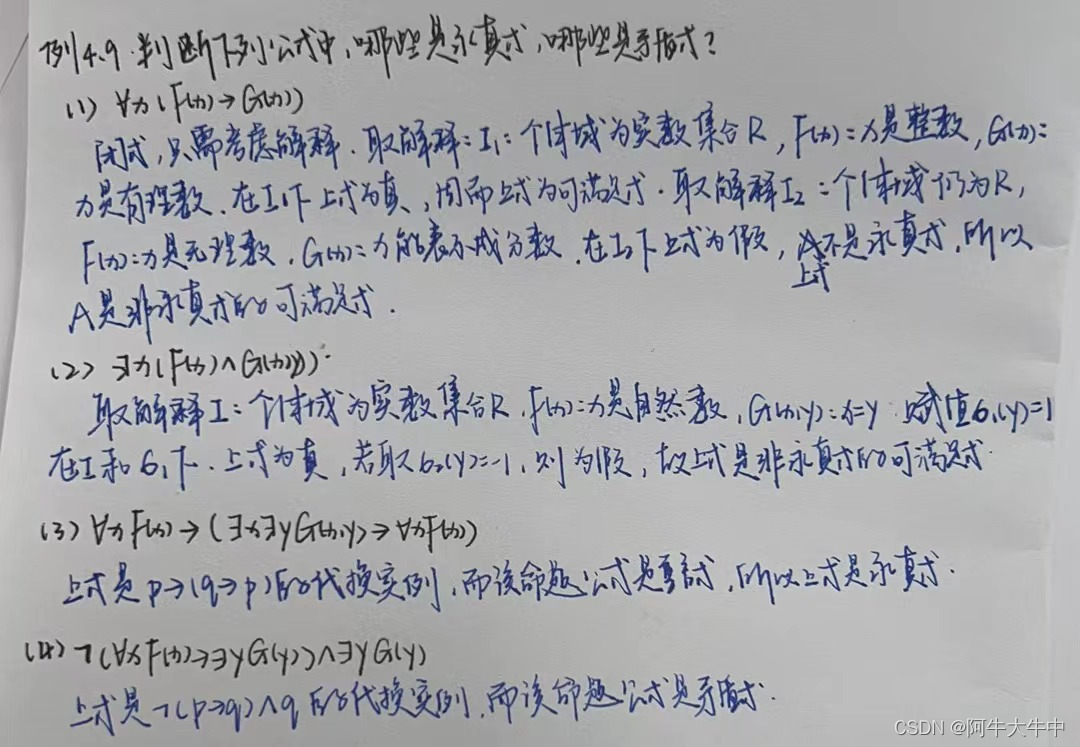 例4.9.判断下列公式中,哪些是永真式,哪些是矛盾式?
(1) ∀x(F(x)→G(x))
闭式,只需考虑解释.取解释:I₁:个体域为实数集合R,F(x):x是整数,G(x):
x是有理数.在I₁下上式为真,因而上式为可满足式.取解释I₂:个体域仍为R,
F(x):x是无理数.G(x):x能表示成分数.在I₂下上式为假,A不是永真式,所以
上式
A是非永真式的可满足式.
(2) ∃x(F(x)∧G(x,y)).
取解释I:个体域为实数集合R.F(x):x是自然数,G(x,y):x=y 赋值σ₁(y)=1
在I和σ₁下.上式为真,若取σ₂(y)=-1,则为假,故上式是非永真式的可满足式.
(3) ∀xF(x)→(∃x∃yG(x,y)→∀xF(x))
上式是p→(q→p)的代换实例,而该命题公式是重言式,所以上式是永真式.
(4) ¬(∀xF(x)→∃yG(y))∧∃yG(y)
上式是¬(p→q)∧q的代换实例,而该命题公式是矛盾式.
CSDN @阿牛大牛中